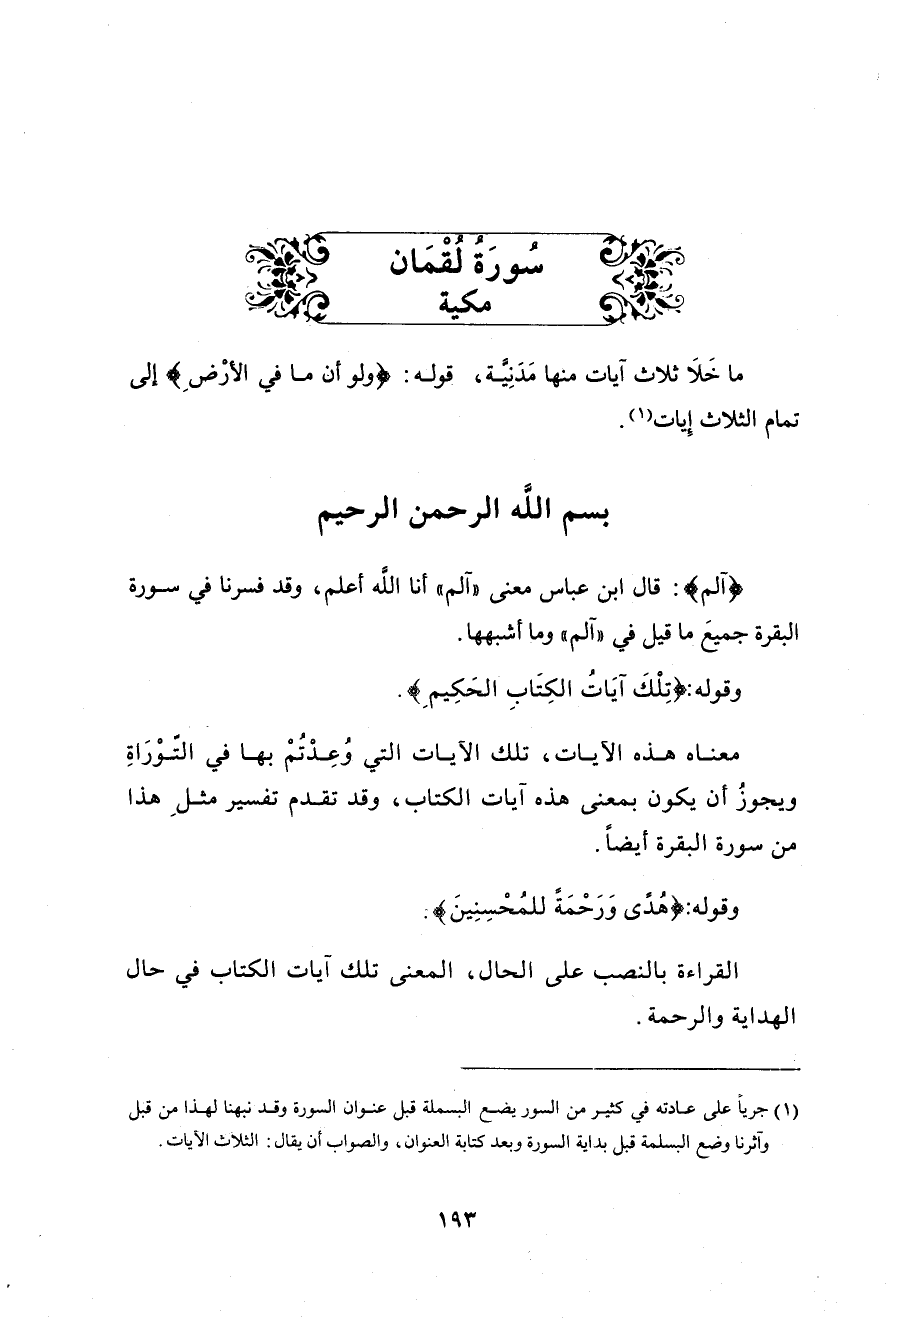 سُورَةُ لُقْمَان
مكية
ما خَلَا ثلاث آيات منها مَدَنِيَّة، قولـه: ﴿ولو أن مـا في الأرْضِ﴾ إلى
تمام الثلاث إيات(١).
بسم اللَّه الرحمن الرحيم
﴿آلم﴾: قال ابن عباس معنى «آلم» أنا اللَّه أعلم، وقد فسرنا في سـورة
البقرة جميعَ ما قيل في «آلم» وما أشبهها.
وقوله:﴿تِلْكَ آيَاتُ الكِتَابِ الحَكِيمِ﴾.
معنـاه هـذه الآيـات، تلك الآيـات التي وُعِـدْتُمْ بهـا في التَّـوْرَاةِ
ويجوزُ أن يكون بمعنى هذه آيات الكتاب، وقد تقـدم تفسير مثـلِ هذا
من سورة البقرة أيضاً.
وقوله:﴿هُدًى وَرَحْمَةً للمُحْسِنِينَ﴾:
القراءة بالنصب على الحال، المعنى تلك آيات الكتاب في حال
الهداية والرحمة.
(١) جرياً على عـادته في كثيـر من السور يضـع البسملة قبل عنـوان السورة وقـد نبهنا لهـذا من قبل
وآثرنا وضع البسلمة قبل بداية السورة وبعد كتابة العنوان، والصواب أن يقال: الثلاث الآيات.
١٩٣